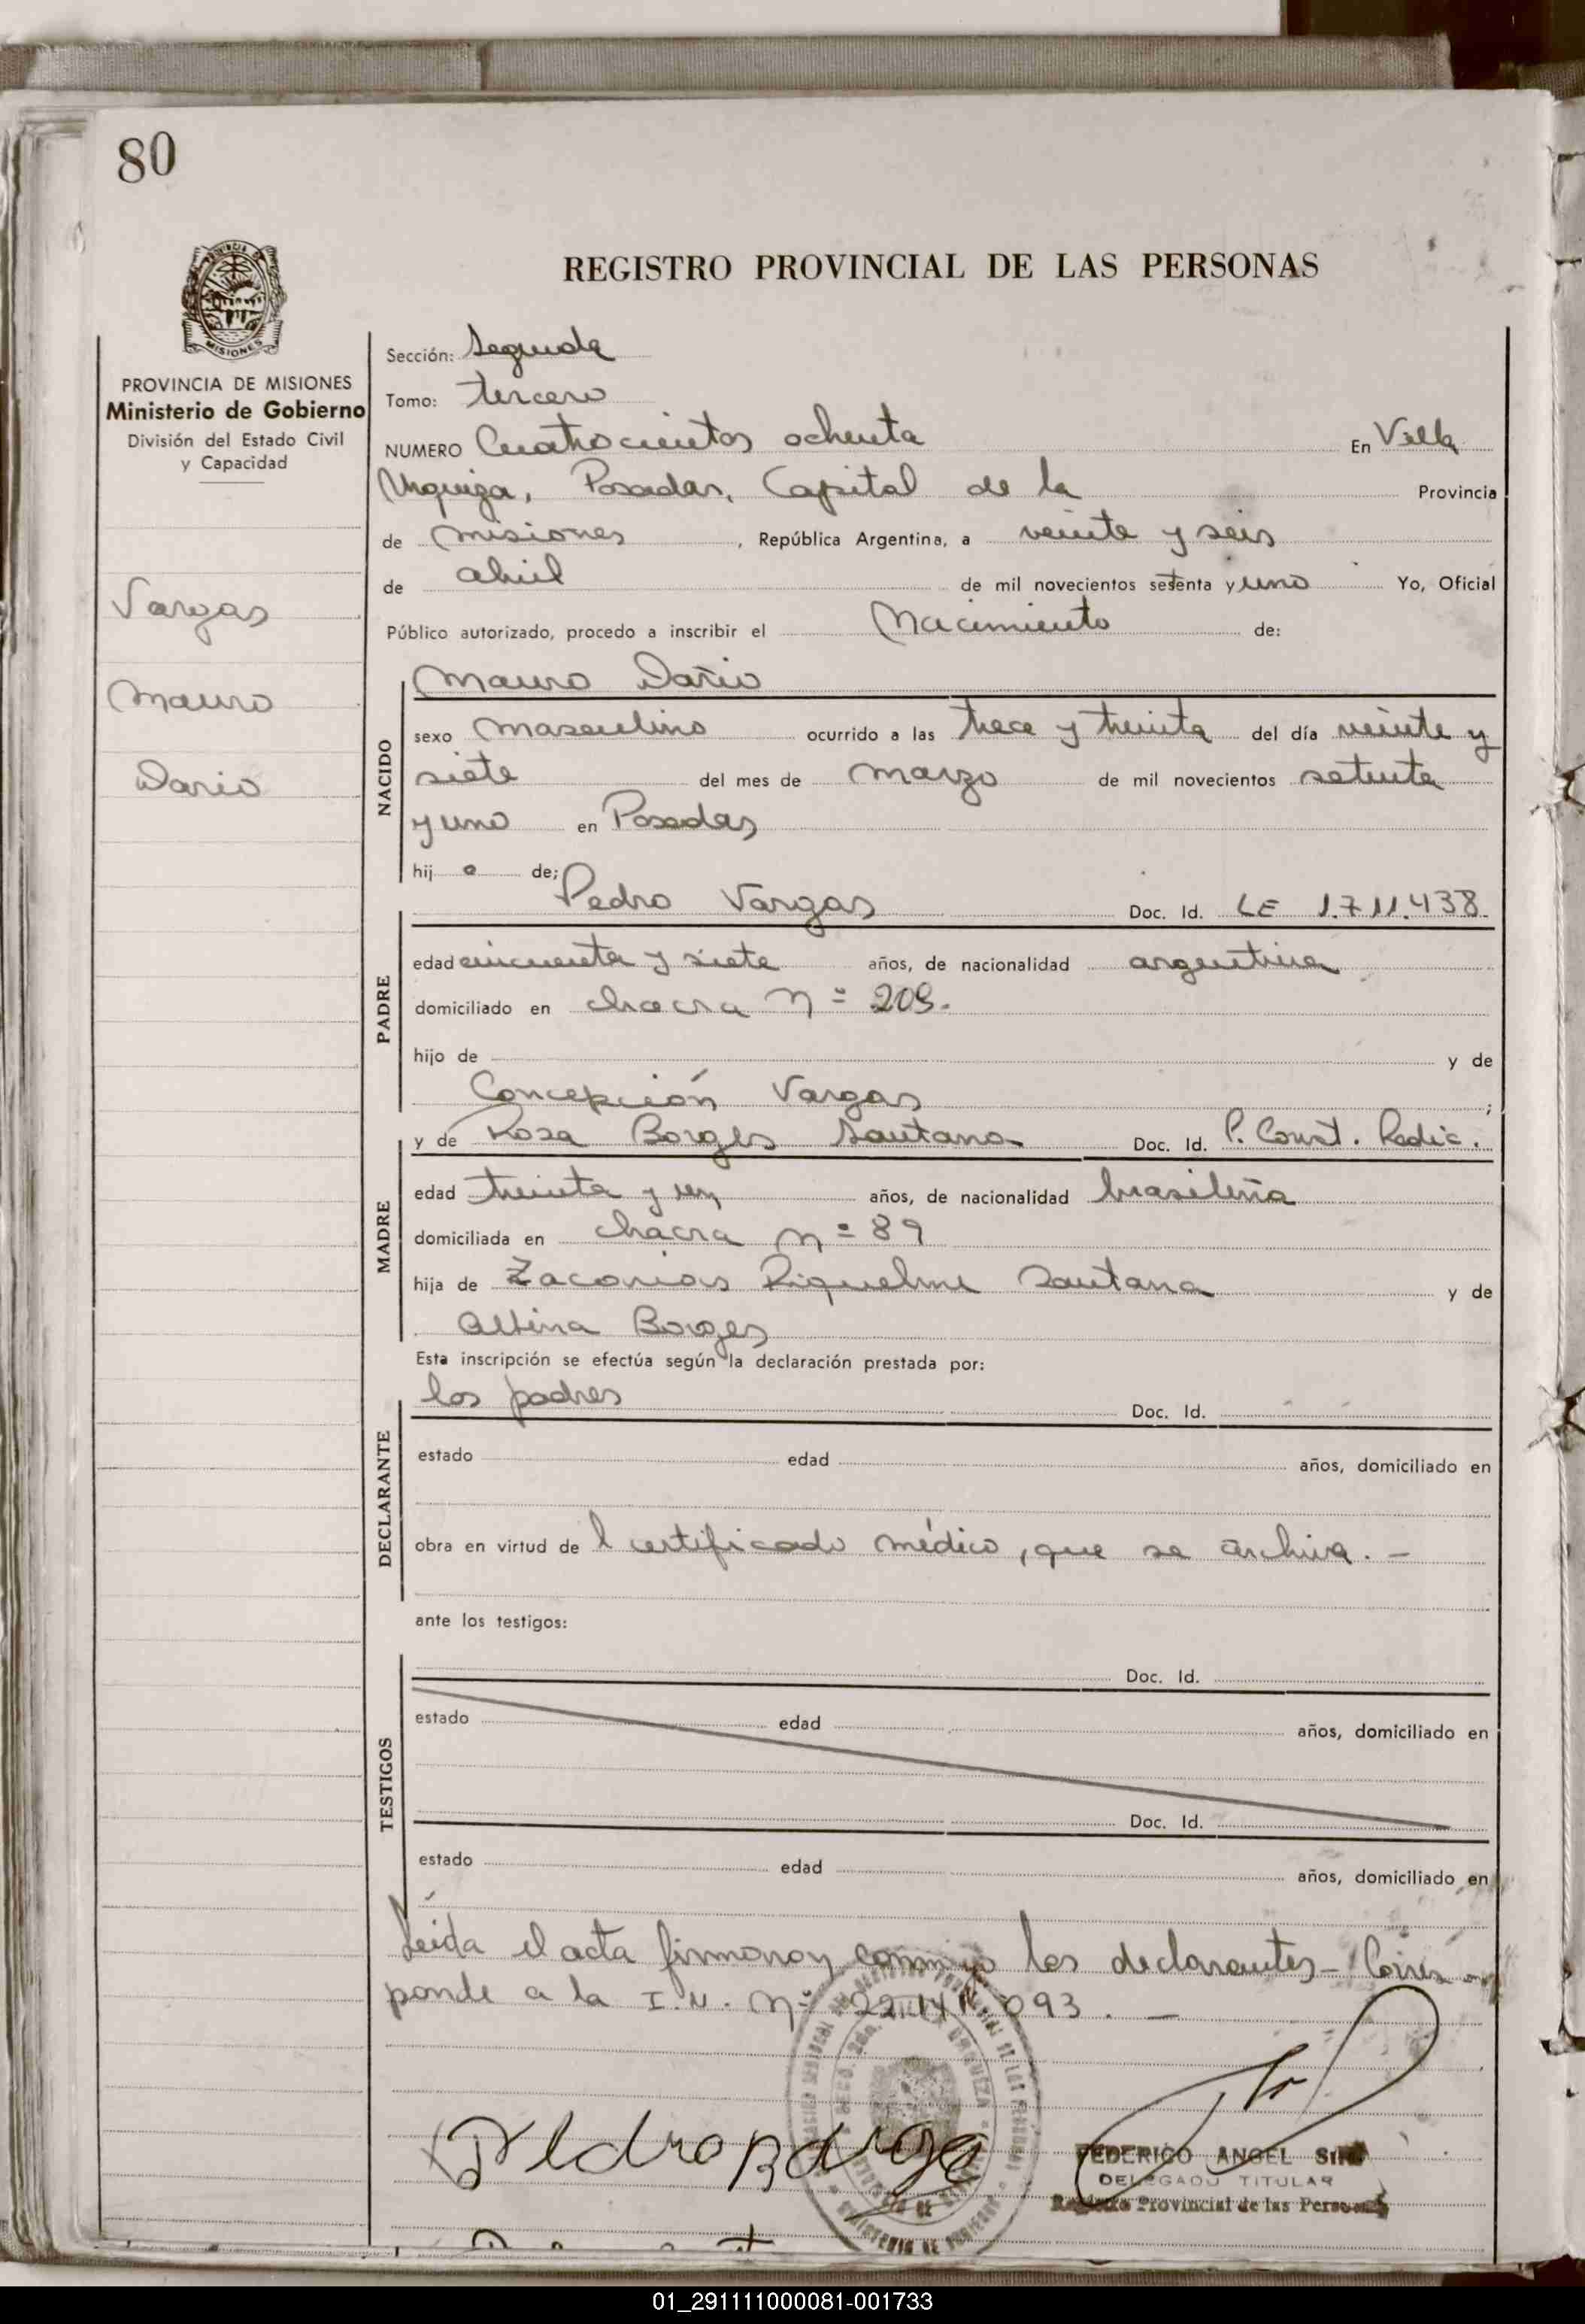 80
REGISTRO PROVINCIAL DE LAS PERSONAS
MISIONES
PROVINCIA DE MISIONES
Ministerio de Gobierno
División del Estado Civil
y Capacidad
Vargas
Mauro
Dario
Sección: Segunda
Tomo: tercero
NUMERO Cuatrocientos ochenta En Villa
Urquiza, Posadas, Capital de la Provincia
de misiones, República Argentina, a veinte y seis
de abril de mil novecientos setenta y uno Yo, Oficial
Público autorizado, procedo a inscribir el Nacimiento de:
Mauro Dario
NACIDO
sexo masculino ocurrido a las trece y treinta del día veinte y
siete del mes de marzo de mil novecientos setenta
y uno en Posadas
hijo de;
Pedro Vargas Doc. Id. LE 1.711.438
PADRE
edad cincuenta y siete años, de nacionalidad argentina
domiciliado en chacra Nº 209.
hijo de y de
Concepción Vargas;
y de Rosa Borges Santana Doc. Id. P. Const. Radic.
MADRE
edad treinta y un años, de nacionalidad brasileña
domiciliada en chacra nº 89
hija de Zaconias Riquelme Santana y de
Albina Borges
Esta inscripción se efectúa según la declaración prestada por:
los padres Doc. Id.
DECLARANTE
estado edad años, domiciliado en
obra en virtud del certificado médico, que se archiva. -
ante los testigos:
Doc. Id.
TESTIGOS
estado edad años, domiciliado en
Doc. Id.
estado edad años, domiciliado en
Leída el acta firmaron conmigo los declarantes - Corres
ponde a la I.N. Nº 093. -
FEDERICO ANGEL
DELEGADO TITULAR
Registro Provincial de las Personas
01_291111000081-001733